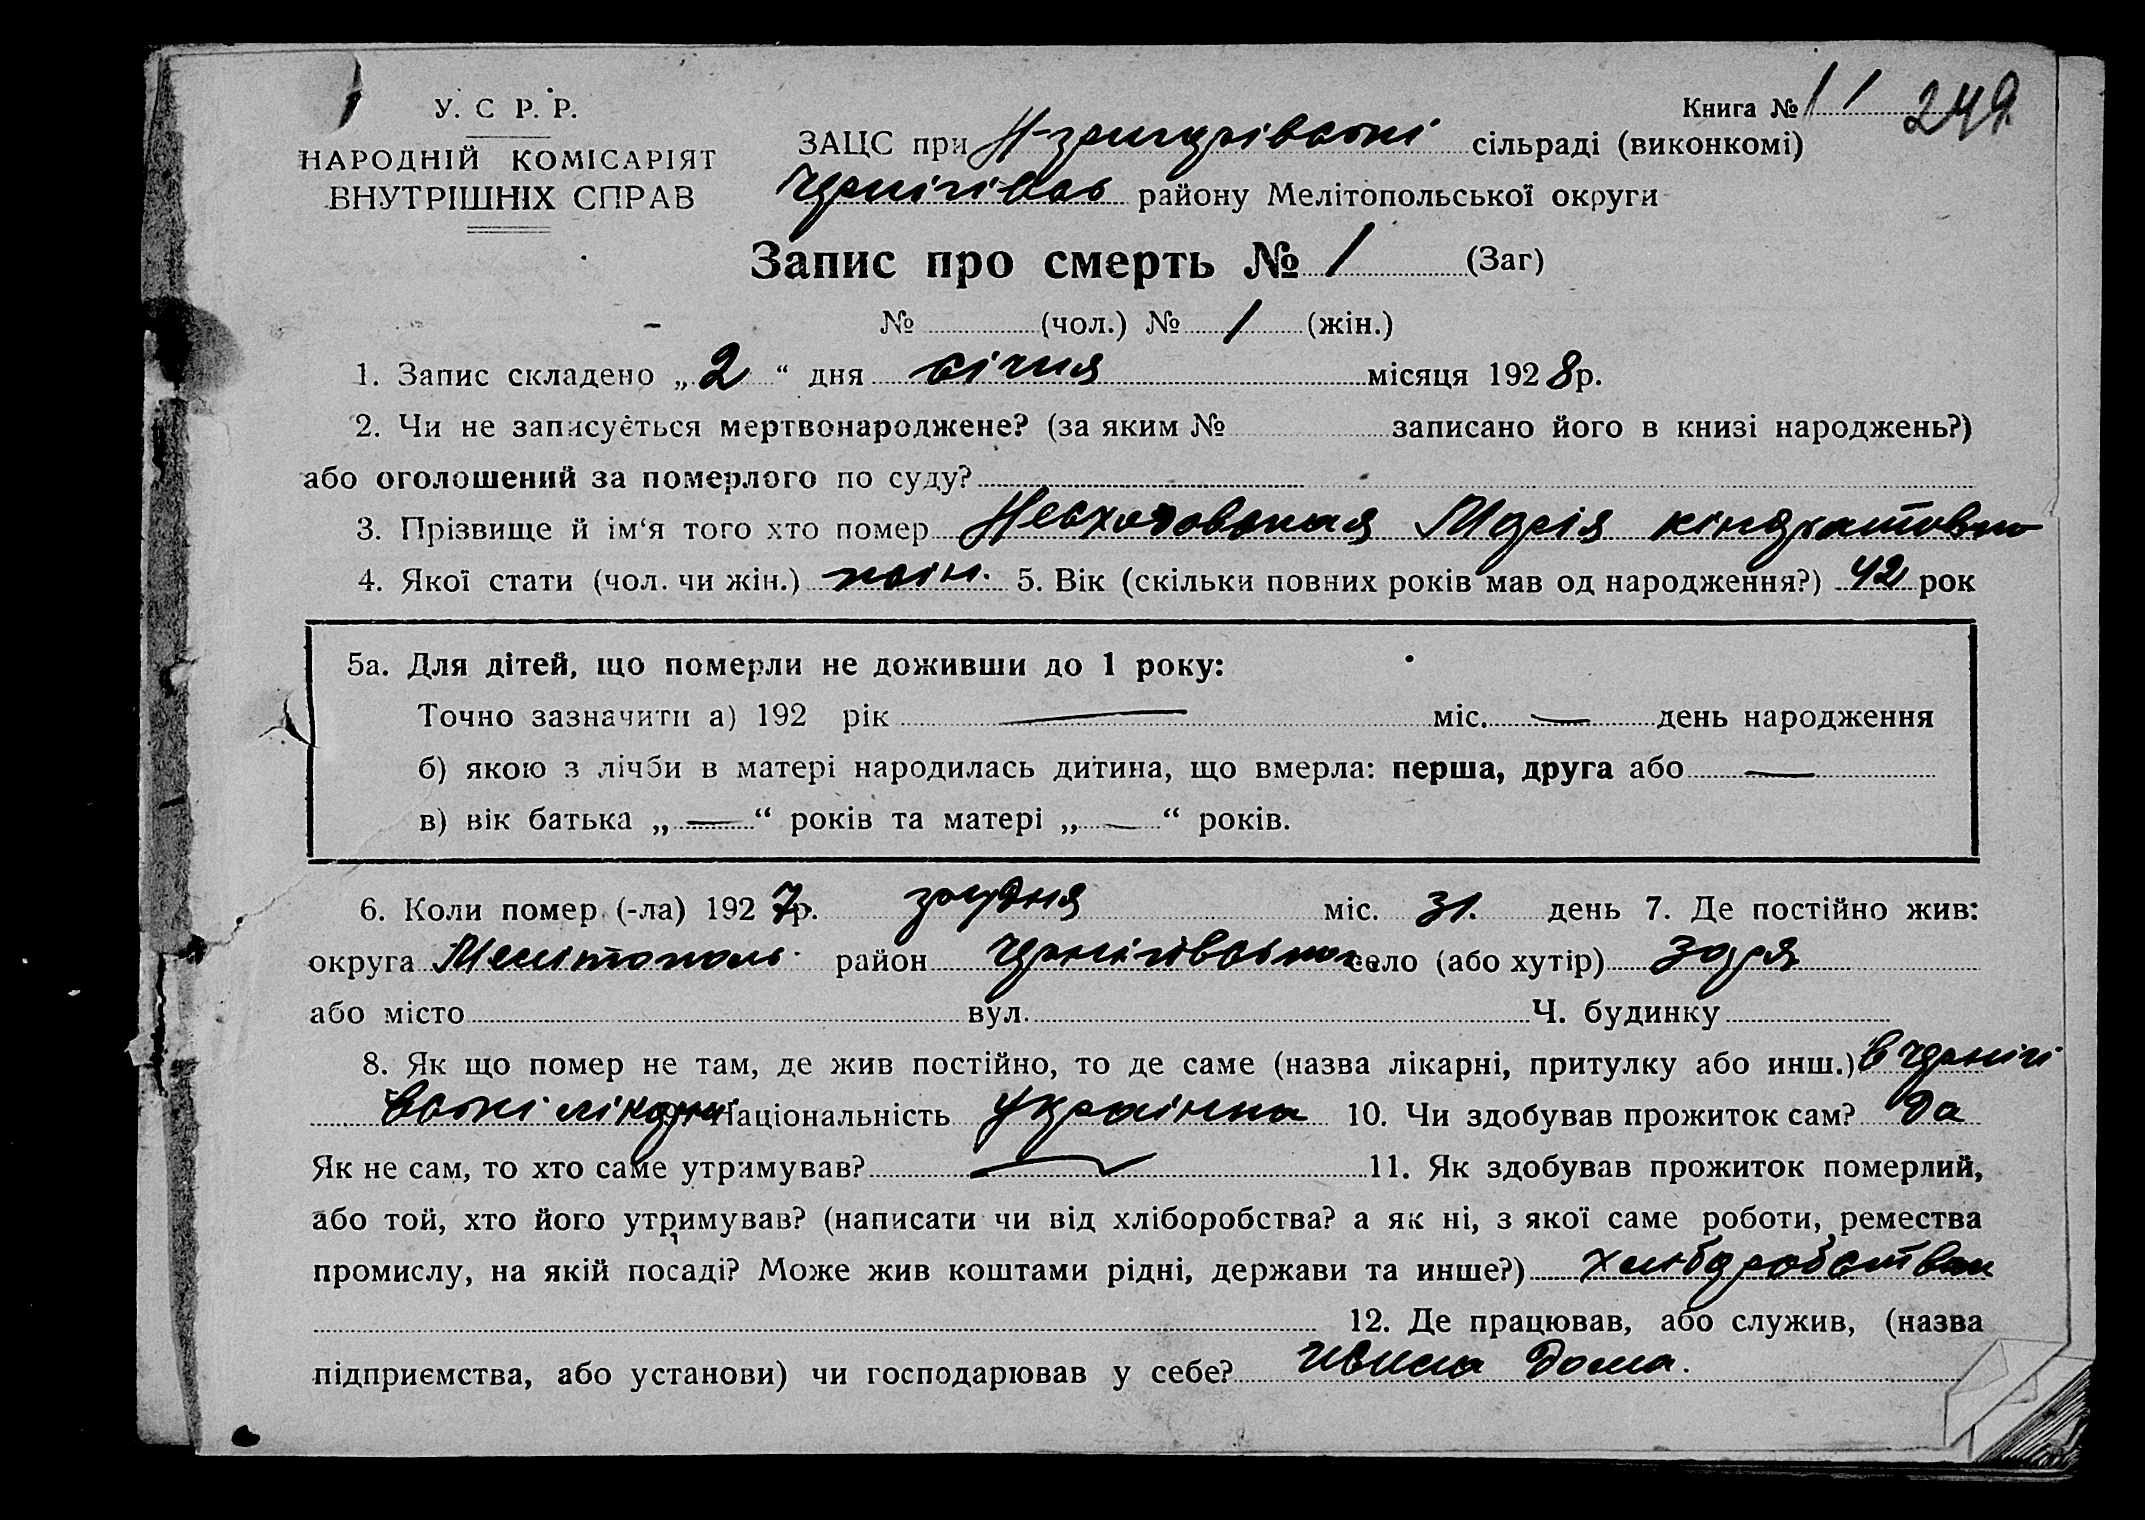 У. С Р. Р.
НАРОДНІЙ КОМІСАРІЯТ
ВНУТРІШНІХ СПРАВ
Книга № 1 1 249
ЗАЦС при сільраді (виконкомі)
Чернігівськ району Мелітопольської округи
Запис про смерть № 1 (Заг)
№ (чол.) № 1 (жін.)
1. Запис складено „ 2 “ дня січня місяця 1928 р.
2. Чи не записується мертвонароджене? (за яким № записано його в книзі народжень?)
або оголошений за померлого по суду?
3. Прізвище й ім‘я того хто помер Марія Кіндратовна
4. Якої стати (чол. чи жін.) жін. 5. Вік (скільки повних років мав од народження?) 42 рок
5а. Для дітей, що померли не доживши до 1 року:
Точно зазначити а) 192 рік — міс. — день народження
б) якою з лічби в матері народилась дитина, що вмерла: перша, друга або —
в) вік батька „ — “ років та матері „ — “ років.
6. Коли помер (-ла) 1927 р. грудня міс. 31. день 7. Де постійно жив:
округа Мелітополь район село (або хутір) Зоря
або місто вул. Ч. будинку
8. Як що помер не там, де жив постійно, то де саме (назва лікарні, притулку або инш.) в Чернігі
вські лікарні Національність Українка 10. Чи здобував прожиток сам? да
Як не сам, то хто саме утримував? — 11. Як здобував прожиток померлий,
або той, хто його утримував? (написати чи від хліборобства? а як ні, з якої саме роботи, ремества
промислу, на якій посаді? Може жив коштами рідні, держави та инше?)
12. Де працював, або служив, (назва
підприємства, або установи) чи господарював у себе? дома.